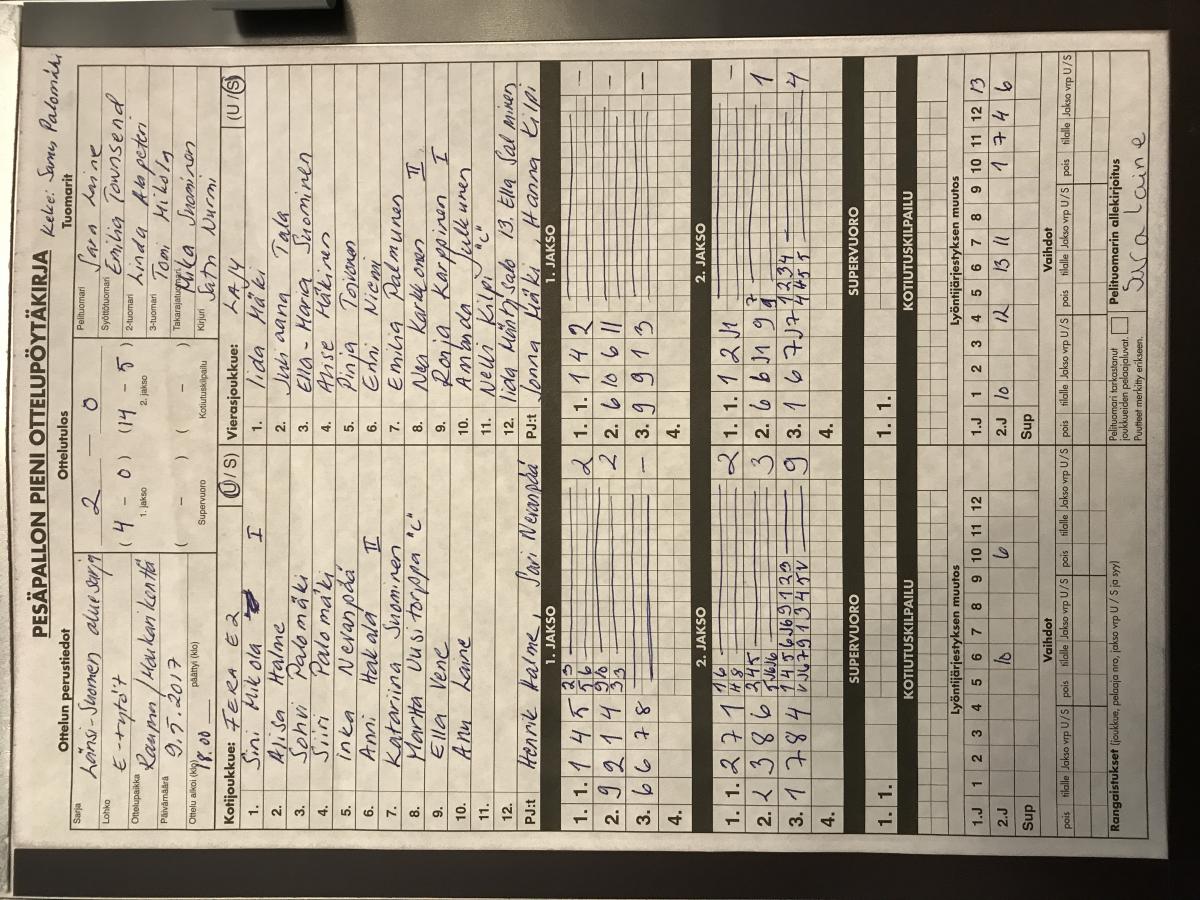 PESÄPALLON PIENI OTTELUPÖYTÄKIRJA
Keke: Samu Palomäki
Ottelun perustiedot
Ottelutulos
Tuomarit
Sarja Länsi-Suomen aluesarja
Lohko E-tytöt
Ottelupaikka Rauma / Haukankenttä
Päivämäärä 9.5.2017
Ottelu alkoi (klo) 18.00 päättyi (klo)
2 — 0
(4 - 0) (14 - 5)
1. jakso 2. jakso
( - ) ( - )
Supervuoro Kotiutuskilpailu
Pelituomari Sara Laine
Syöttötuomari Emilia Townsend
2-tuomari Linda Ala-peteri
3-tuomari Tomi Mikola
Takarajatuomari Mika Suominen
Kirjuri Satu Nurmi
Kotijoukkue: FERA E2 (U / S)
1. Sini Mikola I
2. Alisa Halme
3. Sohvi Palomäki
4. Siiri Palomäki
5. Inka Nevanpää
6. Anni Hakala II
7. Katariina Suominen
8. Martta Uusitorppa "C"
9. Ella Vene
10. Anu Laine
11.
12.
PJ:t Henrik Halme, Sari Nevanpää
Vierasjoukkue: LA14 (U / S)
1. Iida Mäki
2. Jusiaana Tala
3. Ella-Maria Suominen
4. Anse Mäkinen
5. Pinja Toivonen
6. Enni Niemi
7. Emilia Palmunen
8. Nea Karkkonen II
9. Ronja Karppinen I
10. Amanda Julkunen
11. Nelli Kilpi "C"
12. Iida Mäntysalo 13. Ella Salminen
PJ:t Jonna Mäki, Hanna Kilpi
1. JAKSO
1. 1. 1 4 5 2
2. 9 2 1 4 2
3. 6 6 7 8 -
4.
1. JAKSO
1. 1. 1 4 2 -
2. 6 10 6 11 -
3. 9 9 13 -
4.
2. JAKSO
1. 1. 2 7 1 2
2. 2 3 8 6 3
3. 1 7 8 4 9
4.
2. JAKSO
1. 1. 1 2 J1 -
2. 6 6 J1 9 1
3. 1 6 7 J7 4
4.
SUPERVUORO
1. 1.
SUPERVUORO
1. 1.
KOTIUTUSKILPAILU
KOTIUTUSKILPAILU
Lyöntijärjestyksen muutos
1 2 3 4 5 6 7 8 9 10 11 12
1.J
2.J 10 6
Sup
Lyöntijärjestyksen muutos
1 2 3 4 5 6 7 8 9 10 11 12 13
1.J
2.J 10 12 13 11 1 7 4 6
Sup
Vaihdot
pois tilalle Jakso vrp U/S pois tilalle Jakso vrp U/S pois tilalle Jakso vrp U/S
Vaihdot
pois tilalle Jakso vrp U/S pois tilalle Jakso vrp U/S pois tilalle Jakso vrp U/S
Rangaistukset (joukkue, pelaaja nro, jakso vrp U / S ja syy)
Pelituomari tarkastanut
joukkueiden pelaajaluvat.
Puutteet merkitty erikseen.
Pelituomarin allekirjoitus
Sara Laine